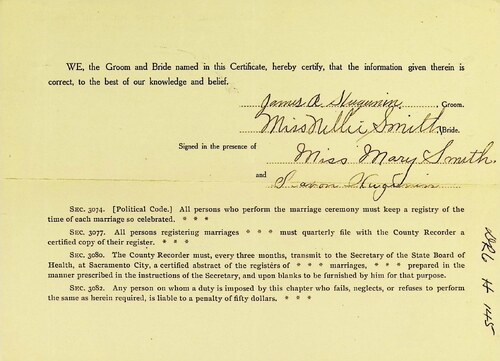 WE, the Groom and Bride named in this Certificate, hereby certify, that the information given therein is
correct, to the best of our knowledge and belief.
James A. Hugunin, Groom.
Miss Nellie Smith, Bride.
Signed in the presence of
Miss Mary Smith.
and
Hugunin
SEC. 3074. [Political Code.] All persons who perform the marriage ceremony must keep a registry of
the time of each marriage so celebrated. * * *
SEC. 3077. All persons registering marriages * * * must quarterly file with the County Recorder a
certified copy of their register. * * *
SEC. 3080. The County Recorder must, every three months, transmit to the Secretary of the State Board of
Health, at Sacramento City, a certified abstract of the registers of * * * marriages, * * * prepared in the
manner prescribed in the instructions of the Secretary, and upon blanks to be furnished by him for that purpose.
SEC. 3082. Any person on whom a duty is imposed by this chapter who fails, neglects, or refuses to perform
the same as herein required, is liable to a penalty of fifty dollars. * * *